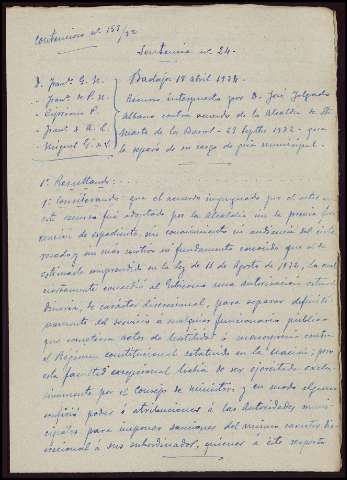 Contencioso nº 157/32
Sentencia nº 24.
D. Franco G. N.
" Franco de P. N.
" Cipriano P.
" Franco A. C.
" Miguel G. y C.
Badajoz 18 abril 1934
Recurso interpuesto por D. José
Albano contra acuerdo de la Alcaldía de Sta
Marta de los Barros - 23 Septbre 1932 - que
le separó de su cargo de guia municipal.
1º Resultando: ...
1º Considerando: que el acuerdo impugnado por el actor en
este recurso fué adoptado por la Alcaldía sin la previa for-
mación de expediente, sin conocimiento ni audiencia del inte-
resado y sin más motivo ni fundamento conocido que el de
estimarlo comprendido en la ley de 11 de Agosto de 1932, la cual
ciertamente concedió al Gobierno una autorización extraor-
dinaria, de carácter discrecional, para separar definiti-
vamente del servicio á cualquier funcionario público
que cometiera actos de hostilidad ó menosprecio contra
el Régimen constitucional estatuido en la nación; pero
esta facultad excepcional había de ser ejercitada exclu-
sivamente por el Consejo de ministros, y en modo alguno
confirió poder ó atribuciones á las Autoridades muni-
cipales para imponer sanciones del mismo caracter dis-
crecional á sus subordinados, quienes á éste respecto